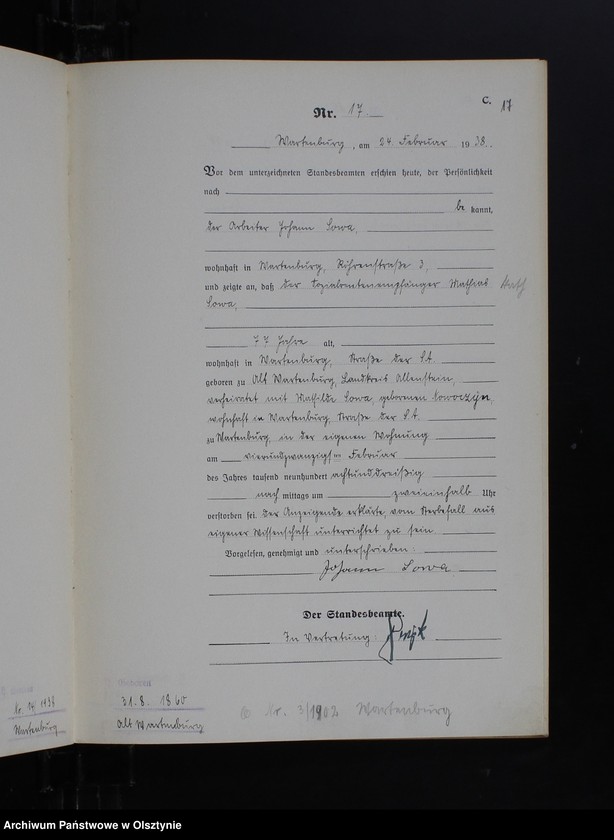 C. 17
Nr. 17.
Wartenburg, am 24. Februar 1938.
Vor dem unterzeichneten Standesbeamten erschien heute, der Persönlichkeit
nach
be kannt,
der Arbeiter Johann Sowa,
wohnhaft in Wartenburg, Röhrenstraße 3,
und zeigte an, daß der Sozialrentenempfänger Mathias
Sowa,
77 Jahre alt,
wohnhaft in Wartenburg, Straße der S.A.
geboren zu Alt Wartenburg, Landkreis Allenstein,
verheiratet mit Mathilde Sowa, geborenen Kowoczyn,
wohnhaft in Wartenburg, Straße der S.A.
zu Wartenburg, in der eigenen Wohnung
am vierundzwanzigsten Februar
des Jahres tausend neunhundert achtunddreißig
nach mittags um zweieinhalb Uhr
verstorben sei. Der Anzeigende erklärte, vom Sterbefall aus
eigener Wissenschaft unterrichtet zu sein.
Vorgelesen, genehmigt und unterschrieben:
Johann Sowa
Der Standesbeamte.
In Vertretung:
31.8. 1860
Alt Wartenburg
Nr. 3/1902 Wartenburg
1938
Wartenburg
Archiwum Państwowe w Olsztynie